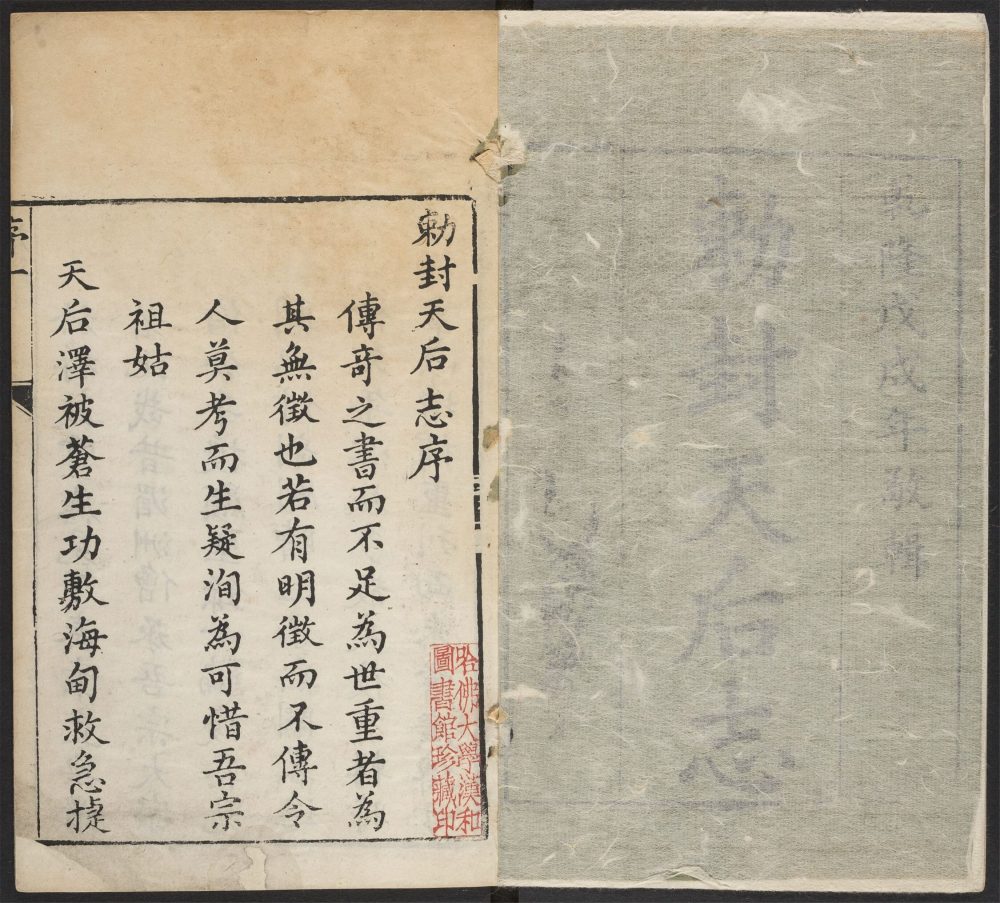 乾隆戊戌年敬輯
勅封天后志
勅封天后志序
傳竒之書而不足為世重者為
其無徵也若有明徵而不傳令
人莫考而生疑洵為可惜吾宗
祖姑
天后澤被蒼生功敷海甸救急㨗
序一
哈佛大學漢和
圖書館珍藏印